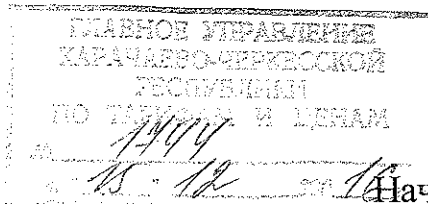 ГЛАВНОЕ УПРАВЛЕНИЕ
КАРАЧАЕВО-ЧЕРКЕССКОЙ
РЕСПУБЛИКИ
ПО ТАРИФАМ И ЦЕНАМ
№ 1744
15 12 16 Нач